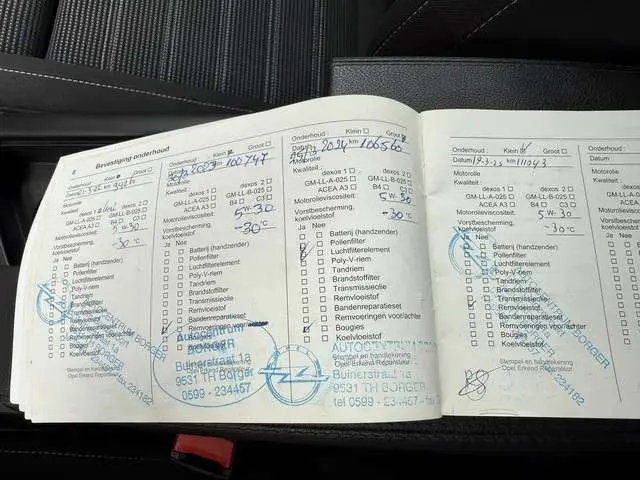 8 Bevestiging onderhoud
Onderhoud : Klein Groot
Datum km
Motorolie
Kwaliteit :
dexos 1 dexos 2
GM-LL-A-025 GM-LL-B-025
ACEA A3 B4 C3
Motorolieviscositeit: 5W-30
Vorstbescherming,
koelvloeistof -30°C
Ja Nee
Batterij (handzender)
Pollenfilter
Luchtfilterelement
Poly-V-riem
Tandriem
Brandstoffilter
Transmissieolie
Remvloeistof
Bandenreparatieset
Remvoeringen voor/achter
Bougies
Koelvloeistof
Stempel en handtekening
Opel Erkend Reparateur
Onderhoud : Klein Groot
Datum 2023 km 100747
Motorolie
Kwaliteit :
dexos 1 dexos 2
GM-LL-A-025 GM-LL-B-025
ACEA A3 B4 C3
Motorolieviscositeit: 5-30
Vorstbescherming,
koelvloeistof -30°C
Ja Nee
Batterij (handzender)
Pollenfilter
Luchtfilterelement
Poly-V-riem
Tandriem
Brandstoffilter
Transmissieolie
Remvloeistof
Bandenreparatieset
Remvoeringen
Bougies
Autocentrum
BORGER
Buinerstraat 1a
9531 TH Borger
0599 - 234457
Onderhoud : Klein Groot
Datum 2024 km 106560
Motorolie
Kwaliteit :
dexos 1 dexos 2
GM-LL-A-025 GM-LL-B-025
ACEA A3 B4 C3
Motorolieviscositeit: 5W-30
Vorstbescherming,
koelvloeistof -30°C
Ja Nee
Batterij (handzender)
Pollenfilter
Luchtfilterelement
Poly-V-riem
Tandriem
Brandstoffilter
Transmissieolie
Remvloeistof
Bandenreparatieset
Remvoeringen voor/achter
Bougies
Koelvloeistof
Stempel en handtekening
Opel Erkend Reparateur
AUTOCENTRUM
Buinerstraat 1a
9531 TH BORGER
tel 0599 - 234457 - fax
Onderhoud : Klein Groot
Datum 19-3-25 km 111043
Motorolie
Kwaliteit :
dexos 1 dexos 2
GM-LL-A-025 GM-LL-B-025
ACEA A3 B4 C3
Motorolieviscositeit: 5W-30
Vorstbescherming,
koelvloeistof -30°C
Ja Nee
Batterij (handzender)
Pollenfilter
Luchtfilterelement
Poly-V-riem
Tandriem
Brandstoffilter
Transmissieolie
Remvloeistof
Bandenreparatieset
Remvoeringen voor/achter
Bougies
Koelvloeistof
Stempel en handtekening
Opel Erkend Reparateur
Onderhoud
Datum
Motorolie
Kwaliteit